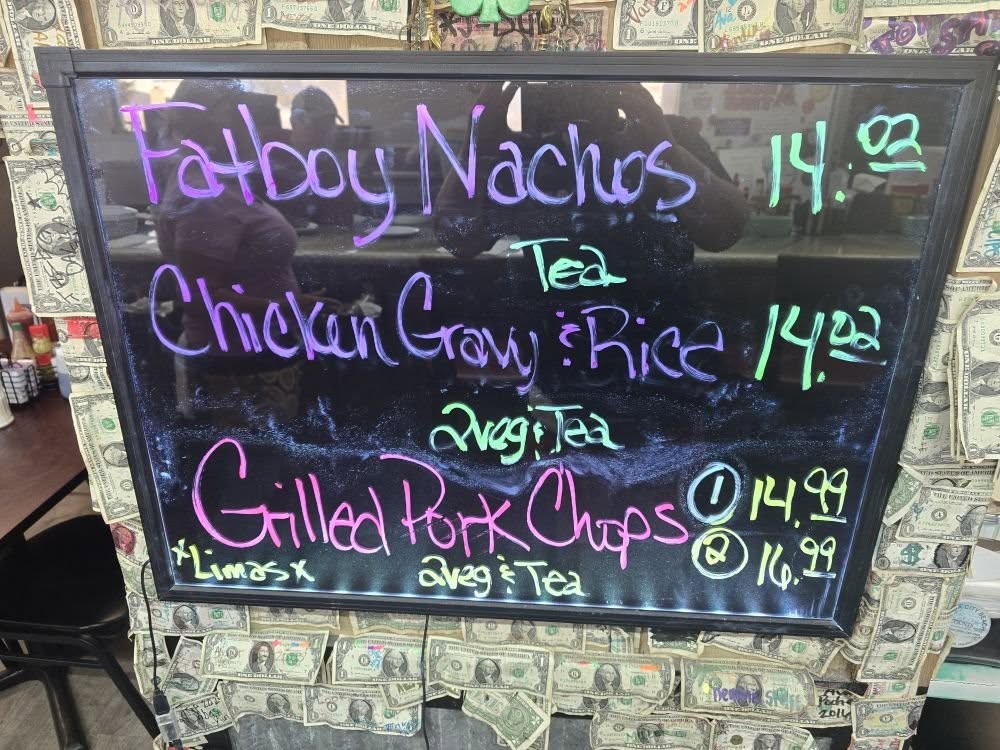 Fatboy Nachos 14.02
Tea
Chicken Gravy & Rice 14.02
2veg & Tea
Grilled Pork Chops ① 14.99
② 16.99
*Limas* 2veg & Tea
ONE DOLLAR
ONE DOLLAR